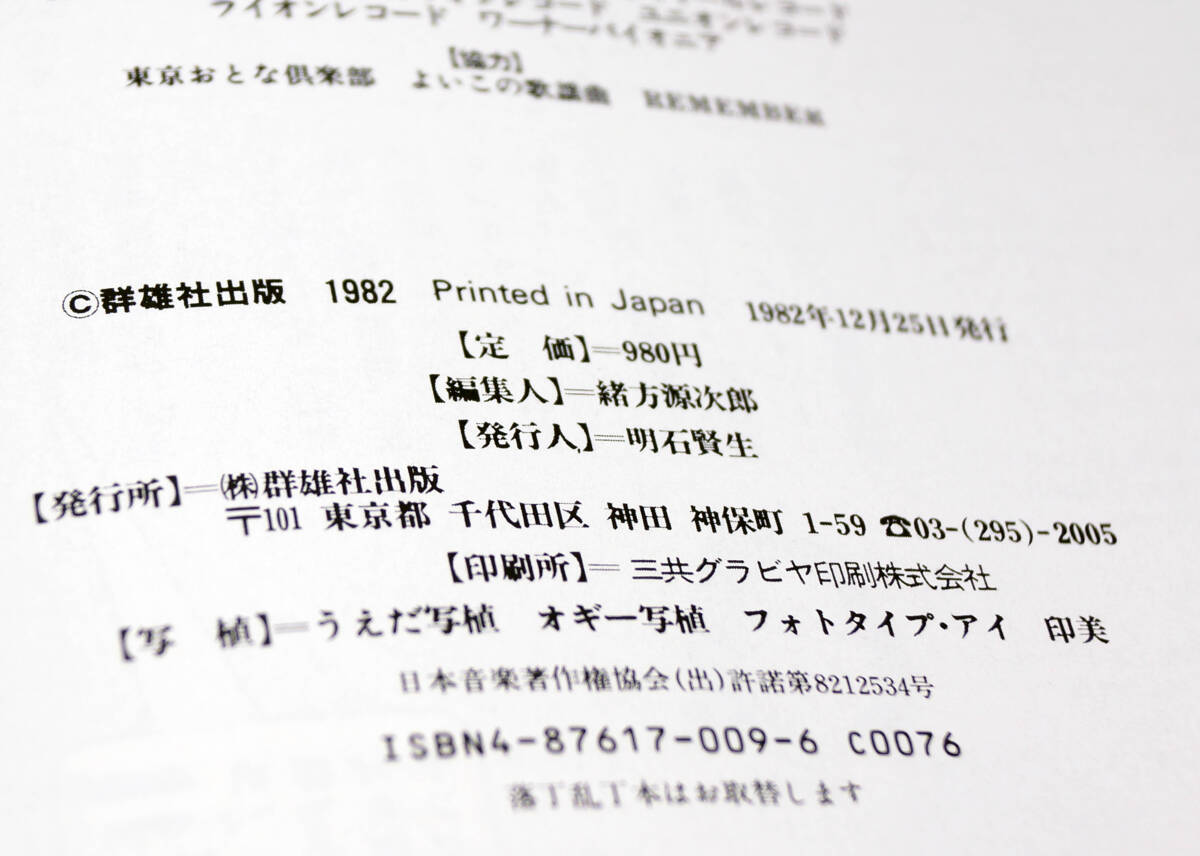 レコード ユニオンレコード
ライオンレコード ワーナーパイオニア
【協力】
東京おとな倶楽部 よいこの歌謡曲 REMEMBER
©群雄社出版 1982 Printed in Japan 1982年12月25日発行
【定 価】=980円
【編集人】=緒方源次郎
【発行人】=明石賢生
【発行所】=㈱群雄社出版
〒101 東京都 千代田区 神田 神保町 1-59 ☎03-(295)-2005
【印刷所】= 三共グラビヤ印刷株式会社
【写 植】=うえだ写植 オギー写植 フォトタイプ・アイ 印美
日本音楽著作権協会(出)許諾第8212534号
ISBN4-87617-009-6 C0076
落丁乱丁本はお取替します